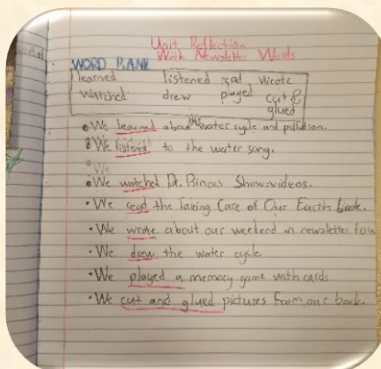 Unit Reflection
With Newsletter Words
WORD BANK
learned listened read wrote
watched drew played cut &
glued
• We learned about the water cycle and pollution.
• We listened to the water song.
• We
• We watched Dr. Binocs Show videos.
• We read the Taking Care of Our Earth book.
• We wrote about our weekend in newsletter form
• We drew the water cycle
• We played a memory game with cards
• We cut and glued pictures from our book.